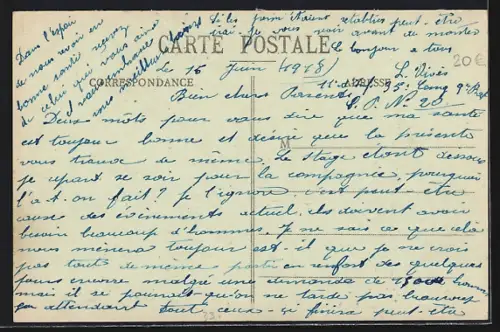 CARTE POSTALE
CORRESPONDANCE
ADRESSE
Le 16 Juin 1918
L. Vivès
S. P. N° 20
20€
Bien chers Parents
Deux mots pour vous dire que ma santé
est toujours bonne et désire que la présente
vous trouve de même. Le stage étant dessous
je repart ce soir pour la compagnie, pourquoi
l'a-t-on fait? je l'ignore. C'est peut-être
cause des évènements actuel, ils doivent avoir
besoin beaucoup d'hommes. Je ne sais ce que celà
nous mènera toujours est-il que je ne crois
pas tout de même partir en renfort des quelques
jours encore malgré une demande de hommes
mais il se pourrait qu'on ne tarde pas,
en attendant tout ceux-ci finira peut-être
si les perm étaient rétablies peut-être
irai-je vous voir avant de monter
Le bonjour à tous
Dans l'espoir
de nous revoir en
bonne santé recevez
de celui qui vous aime
et vous embrasse
vos meilleurs baisers